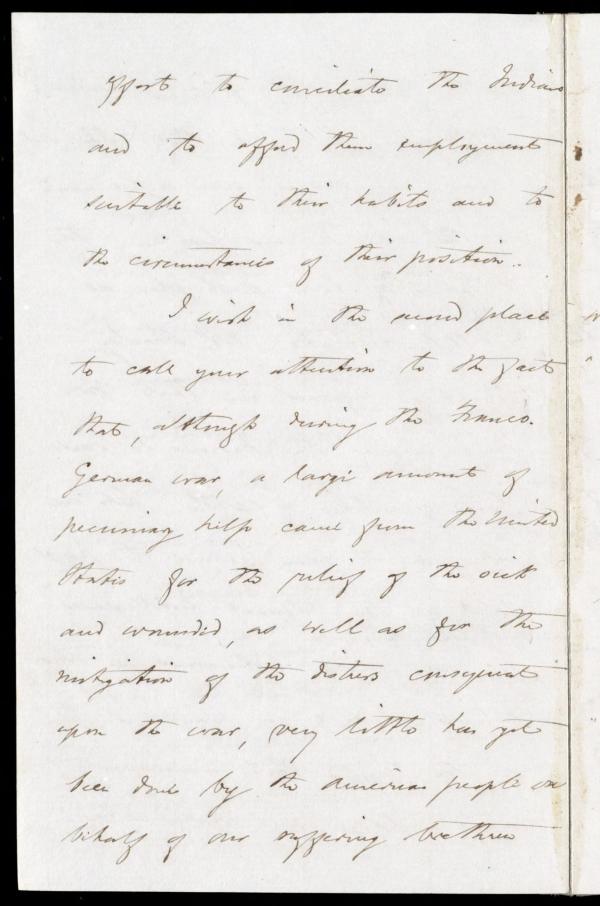 effort to conciliate the Indians
and to afford them employment
suitable to their habits and to
the circumstances of their position.
I wish in the second place
to call your attention to the fact
that, although during the Franco.
German war, a large amount of
pecuniary help came from the United
States for the relief of the sick
and wounded, as well as for the
mitigation of the distress consequent
upon the war, very little has yet
been done by the American people on
behalf of our suffering brethren